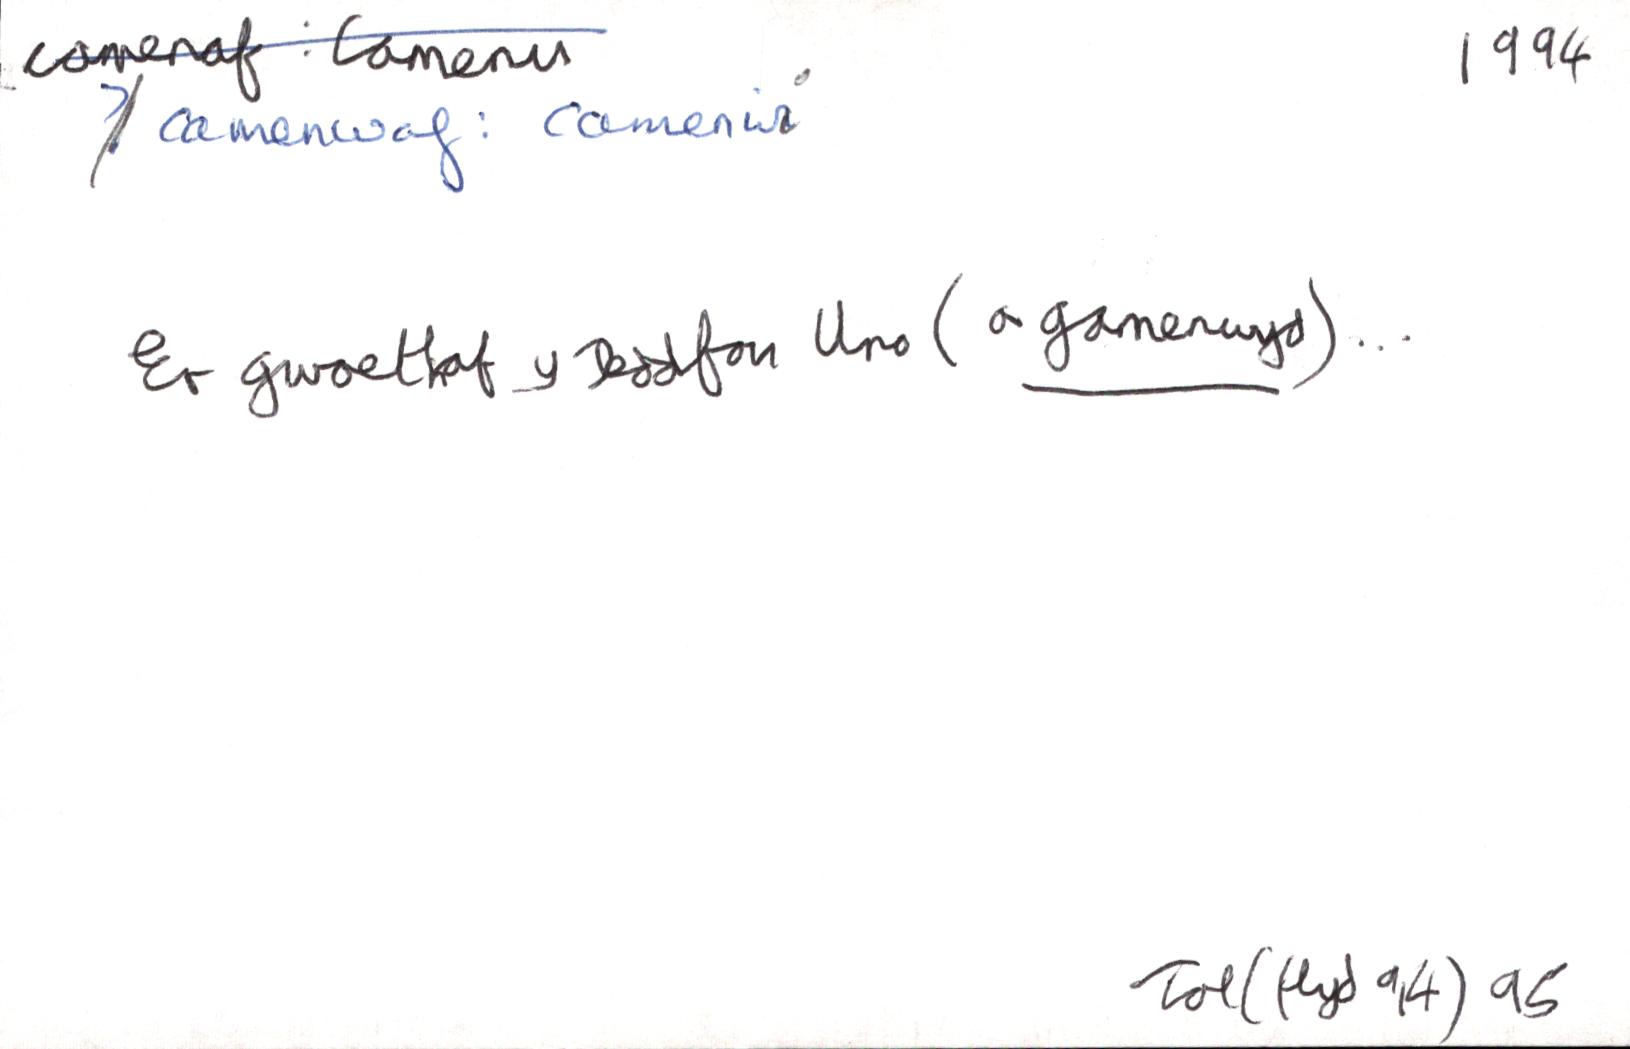 camenaf : Camenu
1994
? camenwaf: camenwi
Er gwaethaf y Deddfau Uno (a gamenwyd)...
Tal (Hyd 94) 95